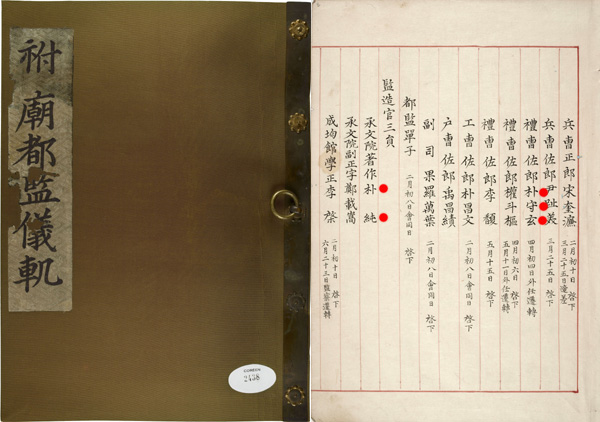 祔廟都監儀軌
COREEN
2438
兵曹正郎宋奎濂 二月初十日 啓下 三月二十五日遞差
兵曹佐郎尹趾 三月二十五日 啓下
禮曹佐郎朴守玄 四月初四日外任遷轉
禮曹佐郎權斗樞 四月初六日 啓下 五月十一日外任遷轉
禮曹佐郎李馥 五月十五日 啓下
工曹佐郎朴昌文 二月初八日 啓下
戶曹佐郎禹昌績
副司果羅萬葉 二月初八日會同日 啓下
都監單子 二月初八日會同日 啓下
監造官三員
承文院著作朴純
承文院副正字鄭載嵩
成均館學正李 二月初十日 啓下 六月二十三日遷轉